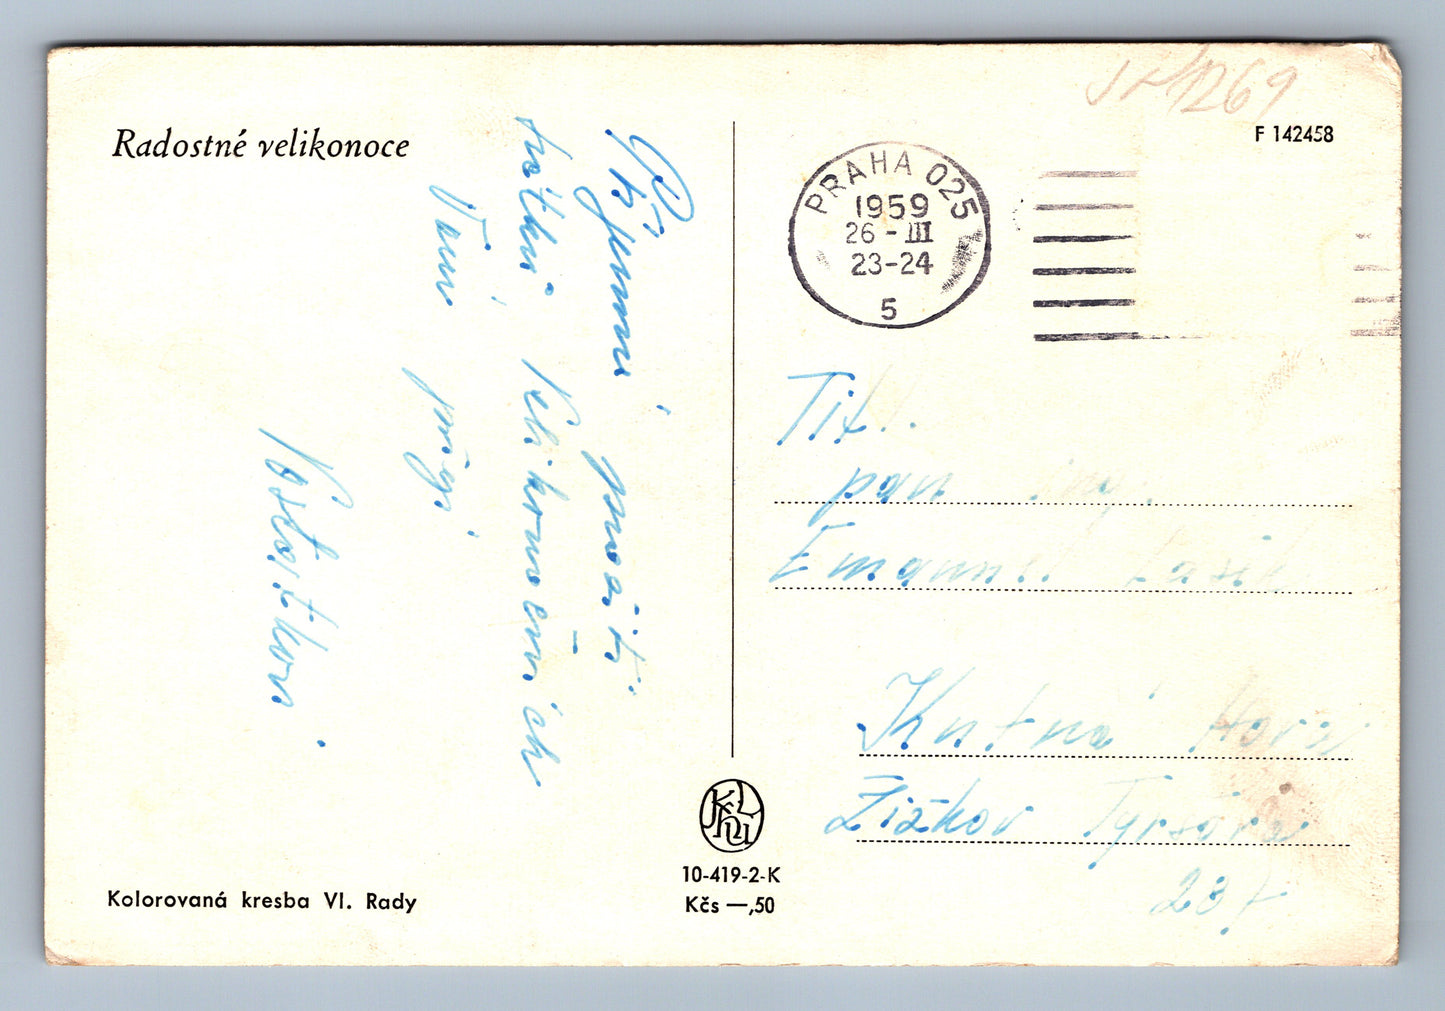 Radostné velikonoce
Příjemné prožití
svátků Velikonočních
Vám přeje
Kolorovaná kresba Vl. Rady
10-419-2-K
Kčs —,50
F 142458
PRAHA 025
1959
26-III
23-24
5
Tit.
pan ing.
Emanuel
Kutná Hora
Žižkov Tyršova
237